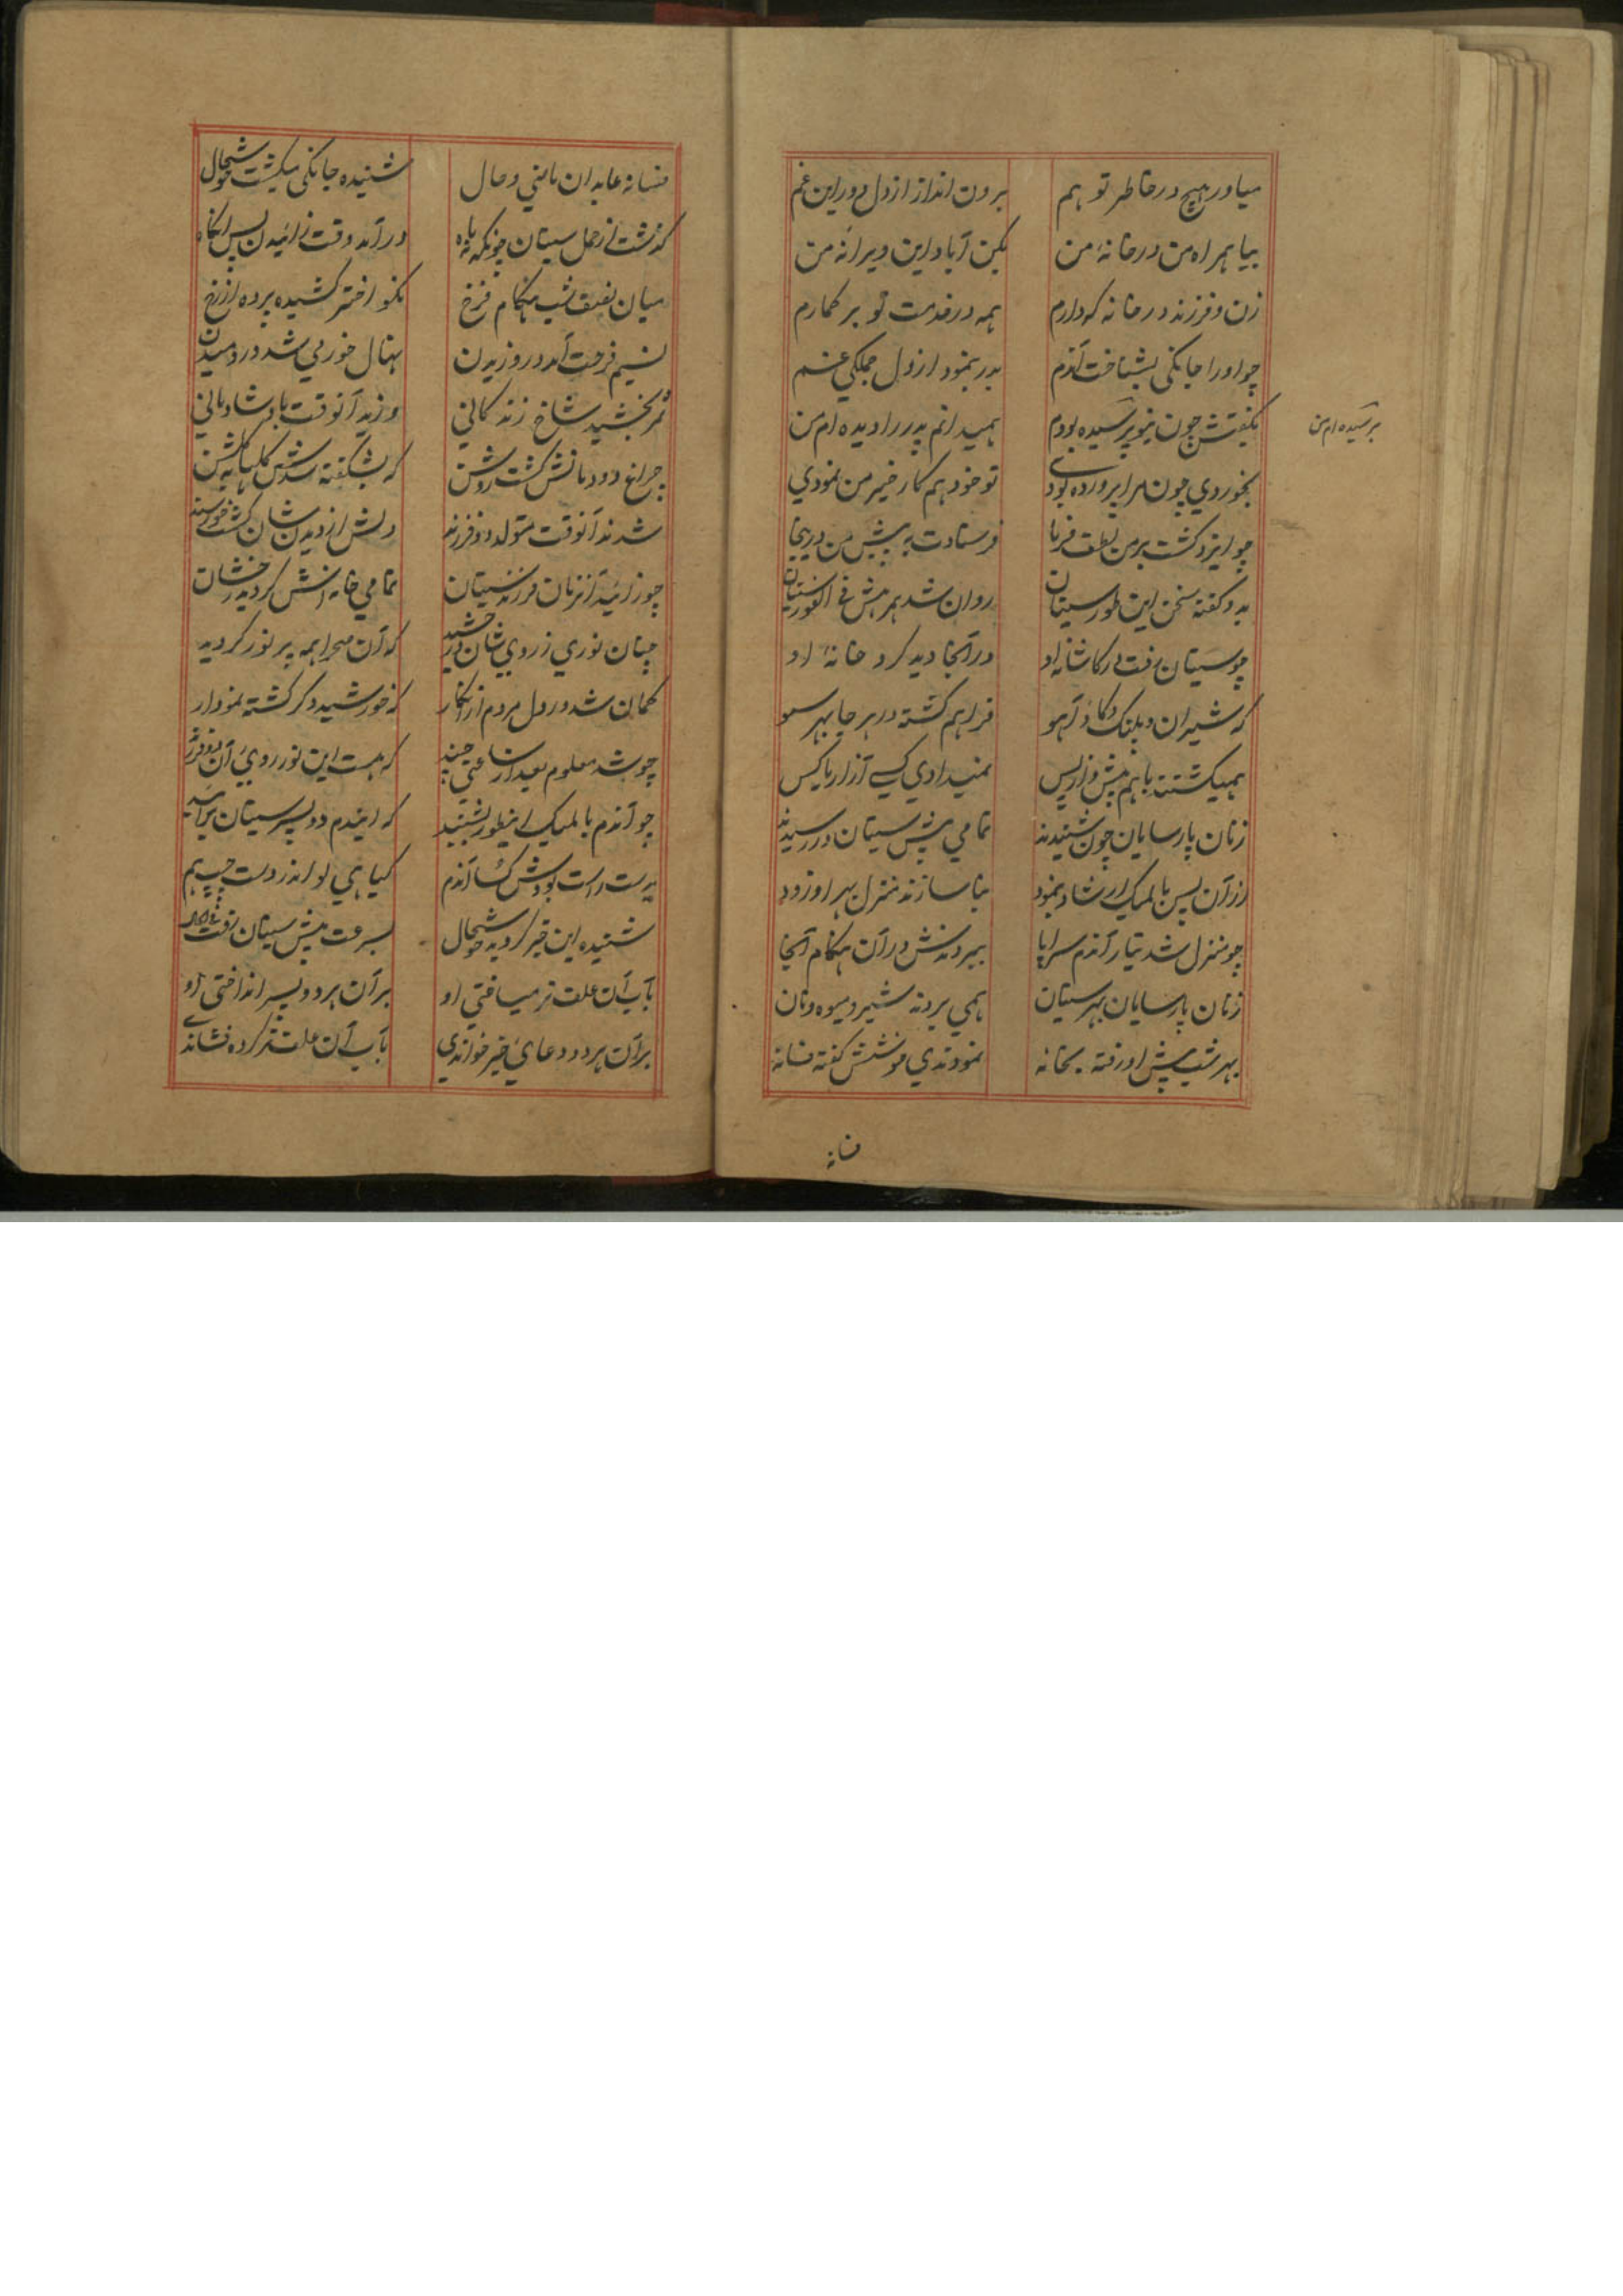 میاور هیچ در خاطر تو هم برون انداز از دل دور این غم
بیا همراه من در خانهٔ من بکن آباد این ویرانهٔ من
زن و فرزند در خانه که دارم همه در خدمت تو بر گمارم
چو او را جانکی بشناخت آندم بدر بنمود از دل جملگی غم
بگفتش چون نیو پرسیده بودم همیدانم پدر را دیده ام من
پرسیده ام من
بخوردی چون مرا پرورده بودی تو خود هم کار خیر من نمودی
چو ایزد گشت بر من لطف فرما فرستادت به پیش من درینجا
بدو گفته سخن این طور سیتان روان شد همرهش فی الفور سیتان
چو سیتان رفت در کاشانه او در آنجا دید کرد خانهٔ او
که شیران و پلنگ و گاو و آهو فراهم گشته در هر جا بهر سو
همیگشتند باهم پیش و از پس نمیدادی کسی آزار با کس
زنان پارسایان چون شنیدند تمامی پیش سیتان در رسیدند
از آن پس بالمیک ارشاد بنمود بنا سازند منزل بهر او زود
چو منزل شد تیار آندم سراپا ببردندش در آن هنگام آنجا
زنان پارسایان بهر سیتان همی بردند شیر و میوه و نان
بهر شب پیش او رفته بخانه نمودندی خوشش گفته فسانه
فسانه
فسانه عابدان ماضی و حال شنیده جانکی میگشت خوشحال
گذشت از حمل سیتان چونکه نه ماه درآمد وقت زائیدن پس آنگاه
میان نصف شب هنگام فرخ نکو اختر کشیده پرده از رخ
نسیم فرحت آمد در وزیدن نهال خورمی شد در دمیدن
ثمر بخشید شاخ زندگانی وزید آنوقت باد شادمانی
چراغ دودمانش گشت روشن که بشگفته شدش گلهای گلشن
شدند آنوقت متولد دو فرزند دلش از دیدن شان گشت خورسند
چو زائید آنزمان فرزند سیتان تمامی خانه اش گردید رخشان
چنان نوری ز روی شان درخشید که آن صحرا همه پر نور گردید
گمان شد در دل مردم از انکار که خورشید دگر گشته نمودار
چو شد معلوم بعد از ساعتی چند که هست این نور روی آن دو فرزند
چو آندم بالمیک اینطور بشنید که ایندم دو پسر سیتان بزائید
بدست راست بودش کسا آندم گیاهی لو اندر دست چپ هم
شنیده این خبر گردید خوشحال بسرعت پیش سیتان رفت
بآب آن علف تر میساختی او بر آن هر دو پسر انداختی او
بر آن هر دو دعای خیر خواندی بآب آن علف تر کرده فشاندی